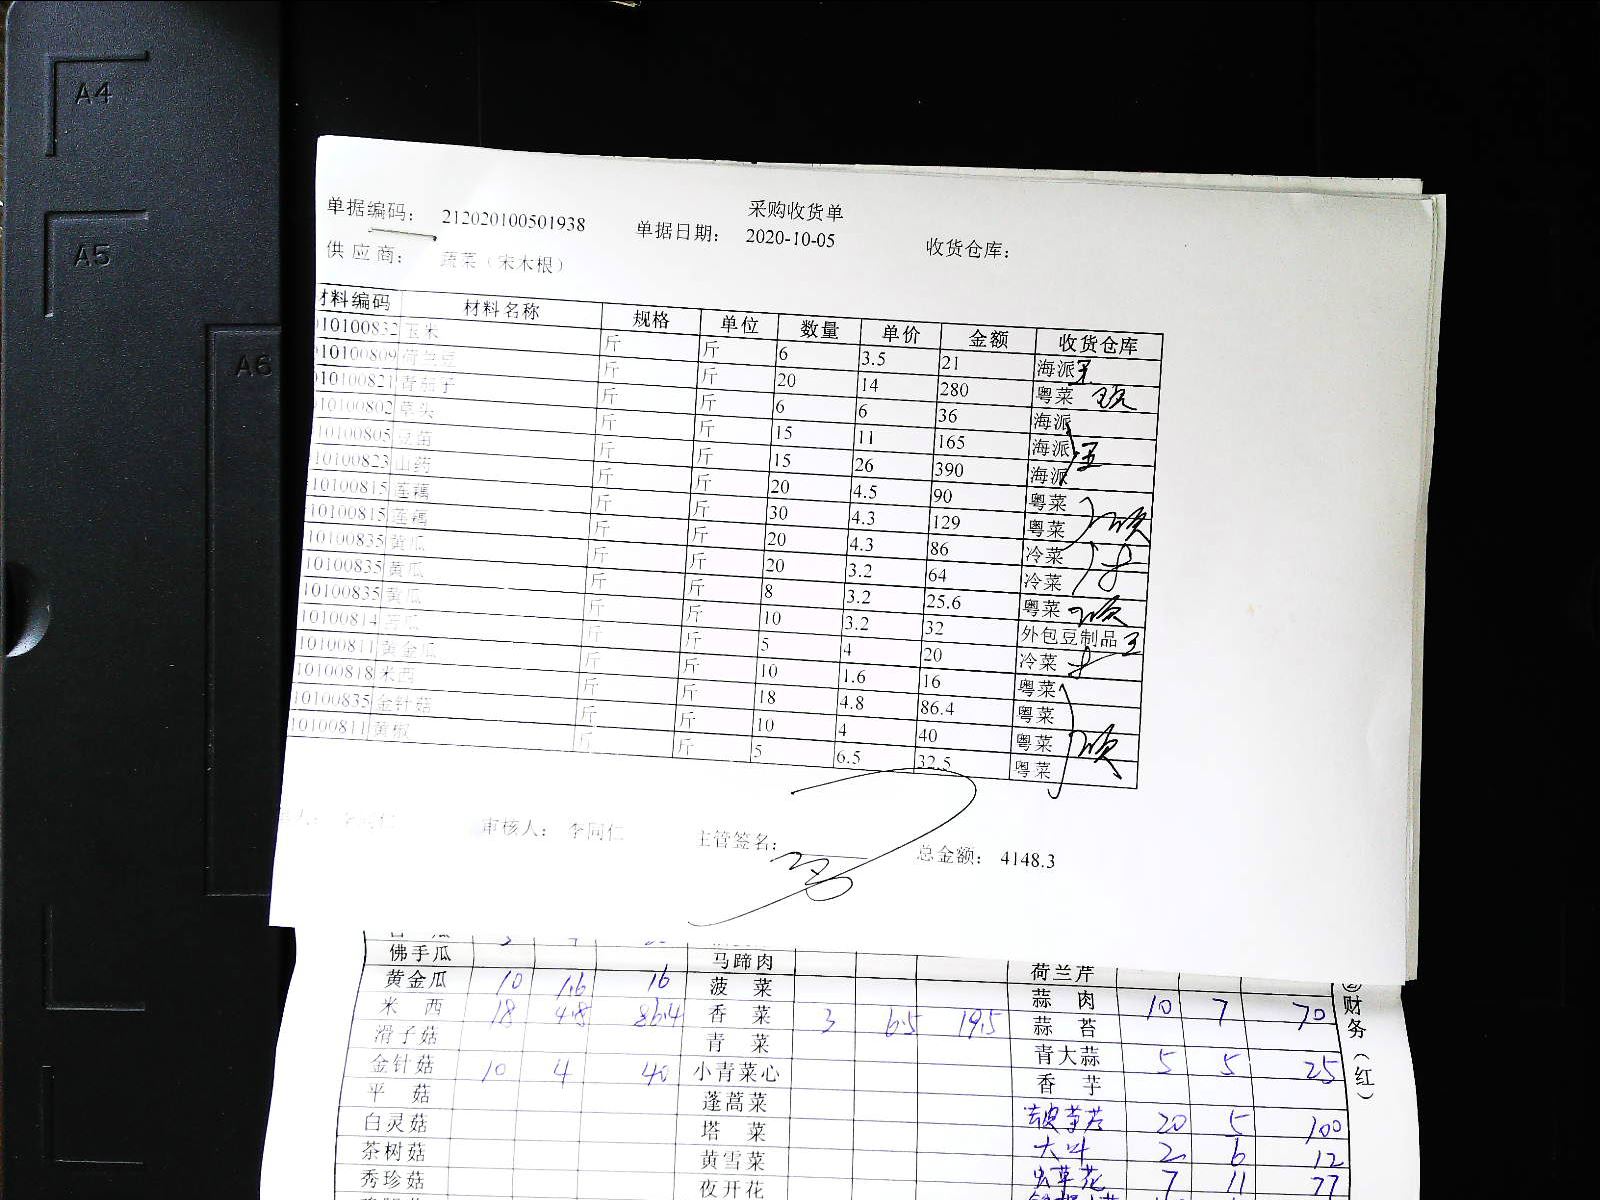 A4
A5
A6
采购收货单
单据编码： 212020100501938 单据日期： 2020-10-05 收货仓库：
供应商： 蔬菜（宋木根）
材料编码 材料名称 规格 单位 数量 单价 金额 收货仓库
10100832 玉米 斤 斤 6 3.5 21 海派
10100809 荷兰豆 斤 斤 20 14 280 粤菜
10100821 青茄子 斤 斤 6 6 36 海派
10100802 草头 斤 斤 15 11 165 海派
10100805 豆苗 斤 斤 15 26 390 海派
10100823 山药 斤 斤 20 4.5 90 粤菜
10100815 莲藕 斤 斤 30 4.3 129 粤菜
10100815 莲藕 斤 斤 20 4.3 86 冷菜
10100835 黄瓜 斤 斤 20 3.2 64 冷菜
10100835 黄瓜 斤 斤 8 3.2 25.6 粤菜
10100835 黄瓜 斤 斤 10 3.2 32 外包豆制品
10100814 瓜 斤 斤 5 4 20 冷菜
10100811 黄金瓜 斤 斤 10 1.6 16 粤菜
10100818 米西 斤 斤 18 4.8 86.4 粤菜
10100835 金针菇 斤 斤 10 4 40 粤菜
10100811 黄椒 斤 斤 5 6.5 32.5 粤菜
审核人： 李同仁 主管签名： 总金额： 4148.3
佛手瓜 马蹄肉 荷兰芹
黄金瓜 10 1.6 16 菠菜 蒜肉 10 7 70
米西 18 4.8 86.4 香菜 3 6.5 19.5 蒜苔
滑子菇 青菜 青大蒜 5 5 25
金针菇 10 4 40 小青菜心 香芋
平菇 蓬蒿菜 20 5 100
白灵菇 塔菜 大叶 2 6 12
茶树菇 黄雪菜 虫草花 7 11 77
秀珍菇 夜开花
②财务（红）